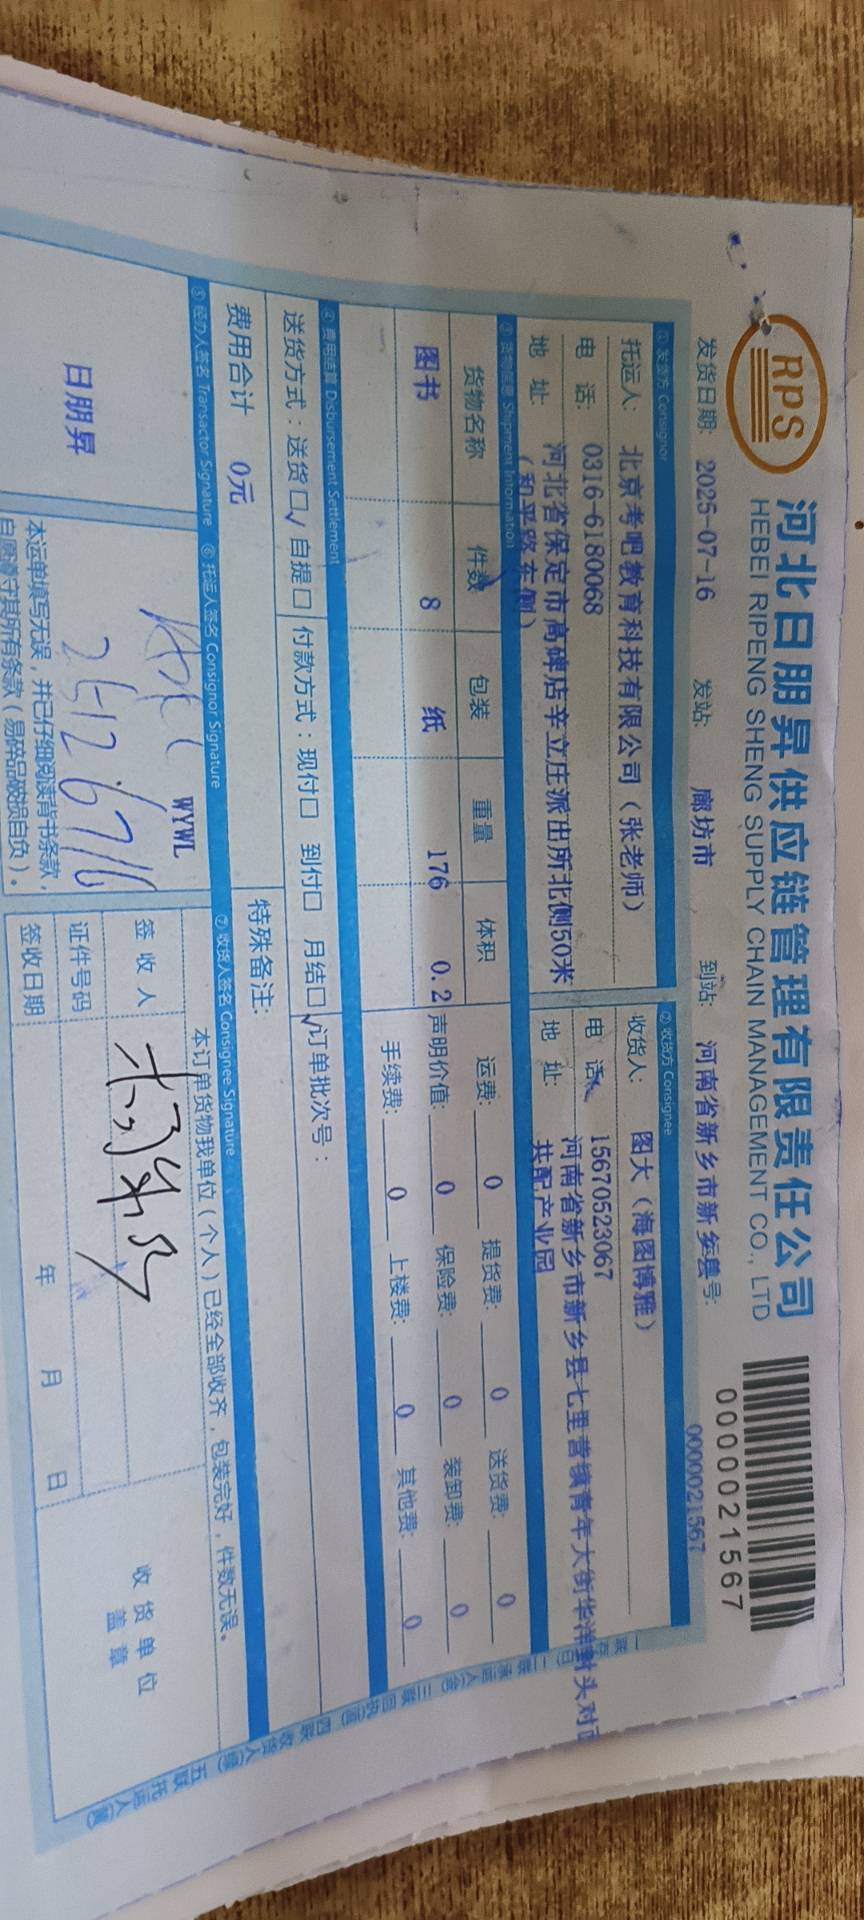 RPS
河北日朋昇供应链管理有限责任公司
HEBEI RIPENG SHENG SUPPLY CHAIN MANAGEMENT CO., LTD
0000021567
发货日期: 2025-07-16 发站: 廊坊市 到站: 河南省新乡市新乡县 号: 0000021567
①发货方 Consignor
托运人: 北京考吧教育科技有限公司（张老师）
电 话: 0316-6180068
地 址: 河北省保定市高碑店辛立庄派出所北侧50米
（和平路东侧）
②收货方 Consignee
收货人: 图大（海图博雅）
电 话: 15670523067
地 址: 河南省新乡市新乡县七里营镇青年大街华洋 头对面
共配产业园
③货物信息 Shipment Information
货物名称 件数 包装 重量 体积
图书 8 纸 176 0.2
运费: 0 提货费: 0 送货费: 0
声明价值: 0 保险费: 0 装卸费: 0
手续费: 0 上楼费: 0 其他费: 0
④费用结算 Disbursement Settlement
送货方式：送货□√ 自提□ 付款方式：现付□ 到付□ 月结□√ 订单批次号：
费用合计 0元
特殊备注：
⑤经办人签名 Transactor Signature
日朋昇
⑥托运人签名 Consignor Signature
WYWL
本运单填写无误，并已仔细阅读背书条款，
自愿遵守其所有条款（易碎品破损自负）。
⑦收货人签名 Consignee Signature
本订单货物我单位（个人）已经全部收齐，包装完好，件数无误。
签收人
证件号码
签收日期 年 月 日
收货单位
盖章
二联承运人 三联回执 四联收货人 五联托运人